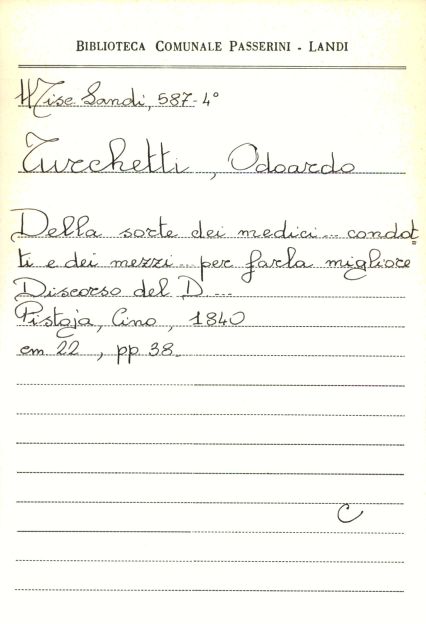 BIBLIOTECA COMUNALE PASSERINI - LANDI
Misc Landi, 587-4°
Turchetti, Odoardo
Della sorte dei medici ... condot
ti e dei mezzi ... per farla migliore
Discorso del D ...
Pistoja, Cino, 1840
cm 22, pp 38.
C